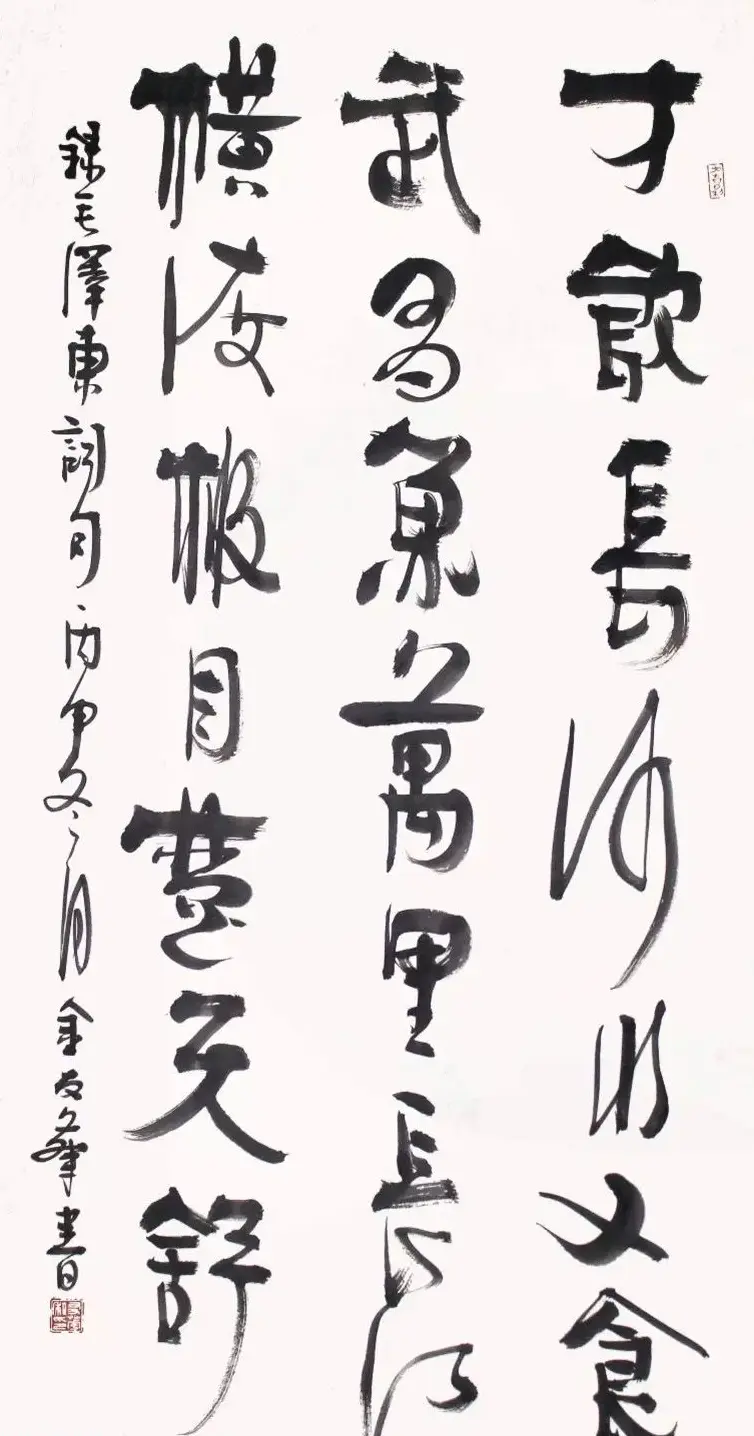 才飲長沙水又食
武昌魚萬里長江
橫渡極目楚天舒
錄毛澤東詞句丙申冬月金友峰書